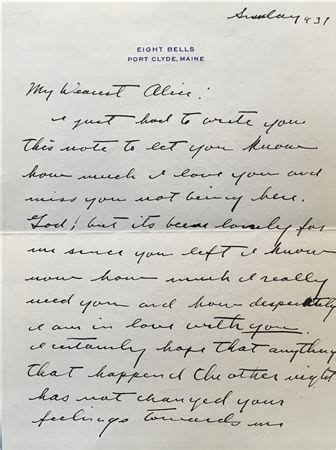 Sunday 931
EIGHT BELLS
PORT CLYDE, MAINE
My Dearest Alice:
I just had to write you
this note to let you know
how much I love you and
miss you not being here.
God, but its been lonely for
me since you left I know
now how much I really
need you and how desperately
I am in love with you.
I certainly hope that anything
that happened the other night
has not changed your
feelings towards me